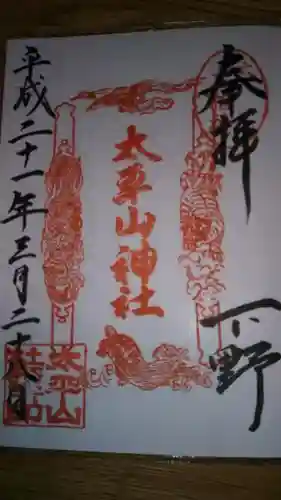 奉拝
下野
太平山神社
平成二十一年三月二十八日
太平山